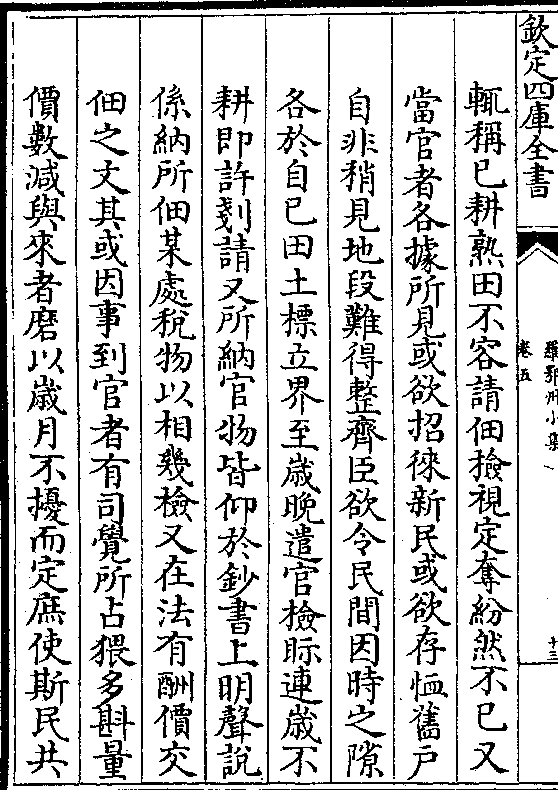 欽定四庫全書
羅鄂州小集
卷五
十三
輒稱已耕熟田不容請佃撿視定奪紛然不已又
當官者各據所見或欲招徠新民或欲存恤舊戶
自非稍見地段難得整齊臣欲令民間因時之隙
各於自已田土標立界至歲晚遣官撿眎連歲不
耕即許剗請又所納官物皆仰於鈔書上明聲說
係納所佃某處稅物以相幾檢又在法有酬價交
佃之文其或因事到官者有司覺所占猥多斟量
價數減與來者磨以歲月不擾而定庶使斯民共